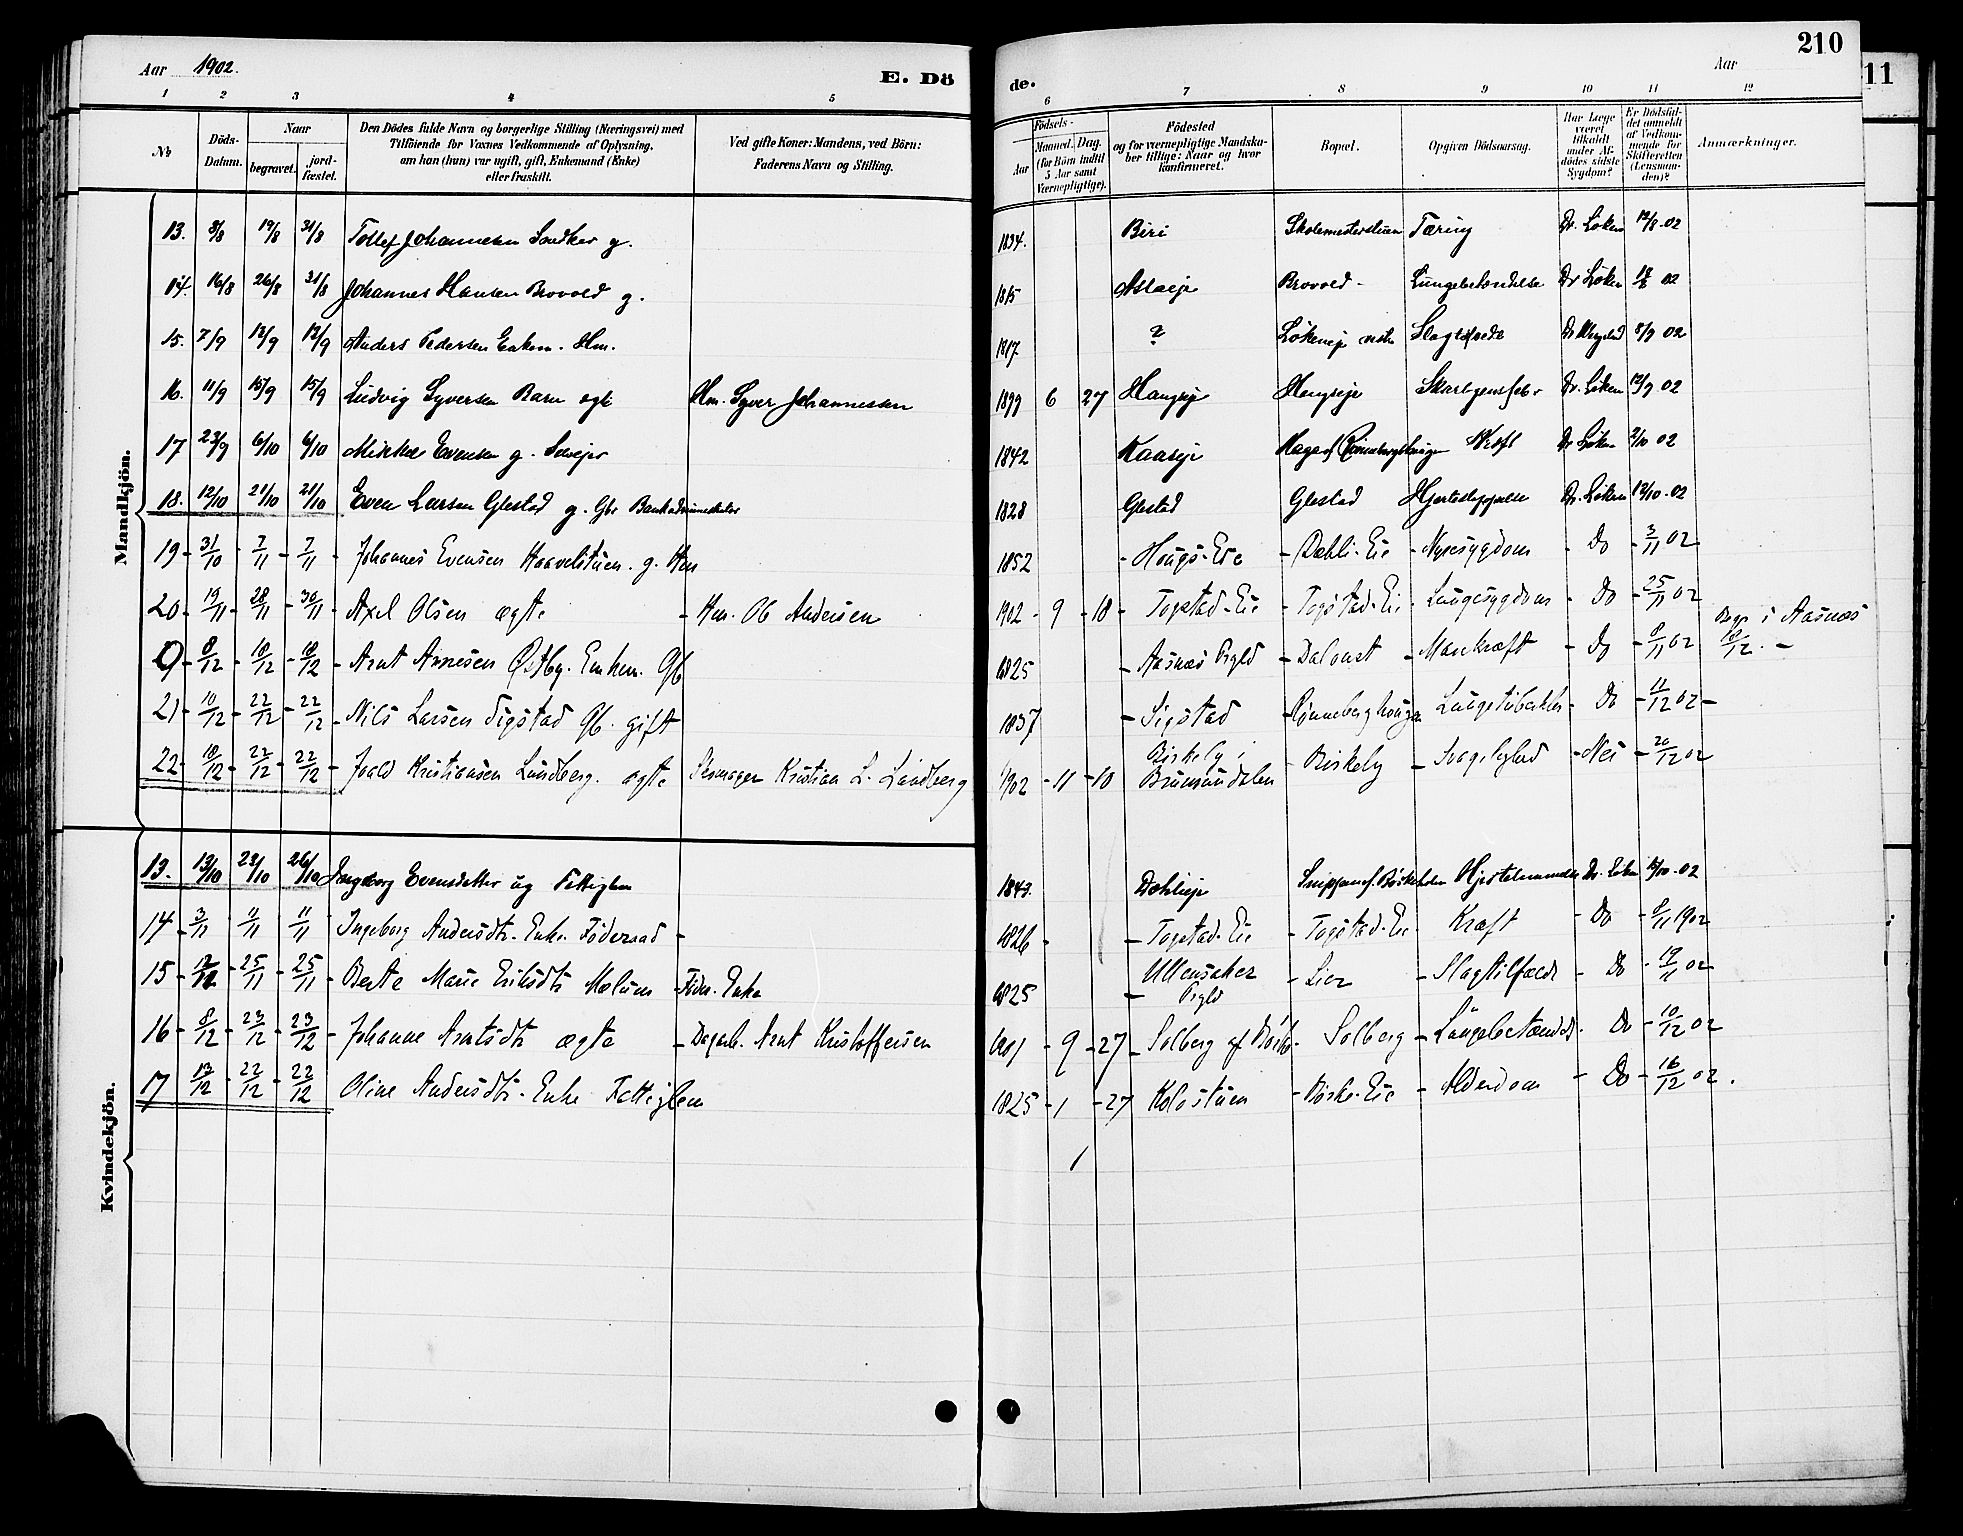 Aar 1902.
E. Dö
de.
Aar
210
11
1 2 3 4 5 6 7 8 9 10 11 12
No
Döds-Datum.
Naar
begravet.
jord-fæstet.
Den Dödes fulde Navn og borgerlige Stilling (Næringsvei) med
Tilföiende for Voxnes Vedkommende af Oplysning,
om han (hun) var ugift, gift, Enkemand (Enke)
eller fraskilt.
Ved gifte Koner: Mandens, ved Börn:
Faderens Navn og Stilling.
Födsels-
Aar
Maaned. Dag.
(for Börn indtil
5 Aar samt
Værnepligtige).
Födested
og for værnepligtige Mandska-
ber tillige: Naar og hvor
konfirmeret.
Bopæl.
Opgiven Dödsaarsag.
Har Læge
været
tilkaldt
under Af-
dödes sidste
Sygdom?
Er Dödsfal-
det anmeldt
af Vedkom-
mende for
Skifteretten
(Lensman-
den)?
Anmærkninger.
Mandkjön.
13. 8/8 19/8 31/8 Tollef Johannesen g. 1834. Biri Skolemesterstuen Tæring Dr. Löken 12/8 02
14. 16/8 26/8 31/8 Johannes Hansen Brovold g. 1815 Brovold Lungebetændelse Dr Löken 18/8 02
15. 7/9 13/9 13/9 Anders Pedersen Enkem. Hm. 1817 ? Lökeneje Dr 8/9 02
16. 11/9 15/9 15/9 Ludvig Syversen Barn ægte Hm. Syver Johannessen 1899 6 27 Haugseje Haugseje Skarlagensfeber Dr. Löken 12/9 02
17 23/9 6/10 6/10 Mikkel Evensen g. 1842 Kaaseje Dr Löken 2/10 02
18. 12/10 21/10 21/10 Even Larsen Glestad g. Gbr Bankadministrator 1828 Glestad Glestad Dr. Löken 12/10 02
19 31/10 7/11 7/11 Johannes Evensen Haavelstuen. g. Hm 1852 Haugs-Eie Dæhli-Eie Nyresygdom Do 3/11 02
20 19/11 28/11 30/11 Axel Olsen ægte Hm. Ol. Andersen 1902 9 18 Togstad-Eie Togstad-Eie Lungesygdom Do 25/11 02
9 8/12 18/12 18/12 Arnt Arnesen Østby. Enkem. Gb 1825 Aasnæs Prgld Mavekræft Do 8/11 02 Begr. i Aasnæs 18/12.
21 11/12 22/12 22/12 Nils Larsen Sigstad Gb. gift 1837 Sigstad Rønneberghaugen Do 11/12 02
22 18/12 22/12 22/12 Kristiansen Lundberg. ægte Skomager Kristian L. Lundberg 1902 11 10 Birkely i Brumunddalen Birkely Svagelighed Nei 20/12 02
Kvindekjön.
13. 13/10 23/10 26/10 Ingeborg Evensdatter ug Fattiglem 1843. Dæhlieje Dr. Löken 15/10 02
14 3/11 11/11 11/11 Ingeborg Andersdtr. Enke. Föderaad 1826 Togstad-Eie Togstad-Eie Kræft Do 8/11 1902
15 25/11 25/11 Berte Marie Eriksdtr Mælum Föder. Enke 1825 Ullensaker Prgld Lier Slagtilfælde Do 18/11 02
16 8/12 23/12 23/12 Johanne Arntsdtr ægte Dagarb. Arnt Kristoffersen 1901 9 27 Solberg af Börke Solberg Lungebetændels. Do 10/12 02
17 13/12 22/12 22/12 Oline Andersdtr. Enke Fattiglem 1825 1 27 Kolostuen Börke-Eie Alderdom Do 16/12 02.
1